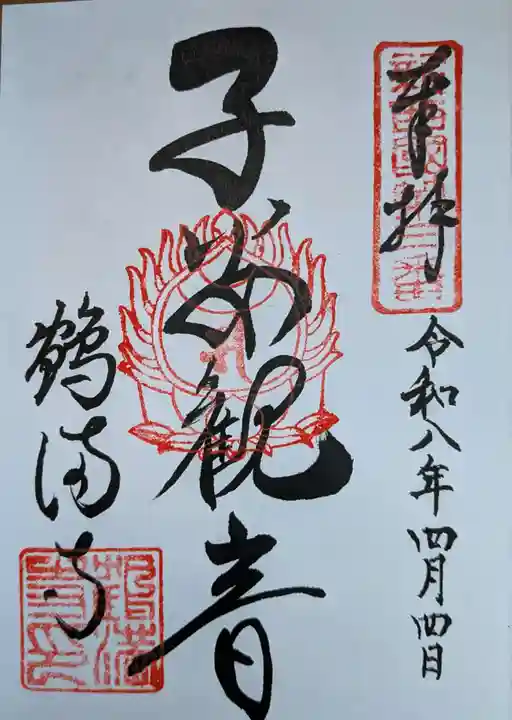 奉拝
令和八年四月四日
子安観音
鶴満寺